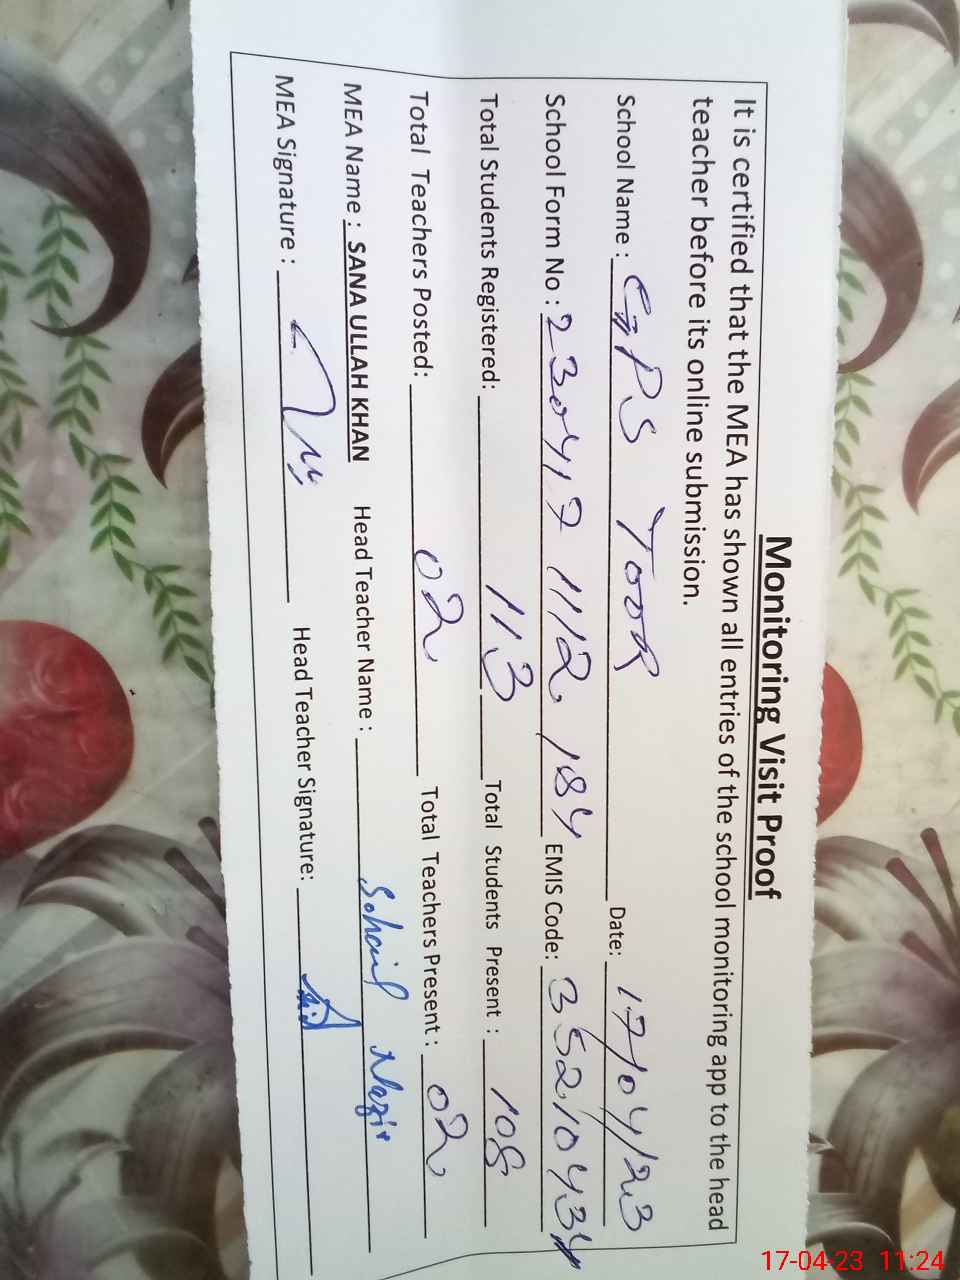 Monitoring Visit Proof
It is certified that the MEA has shown all entries of the school monitoring app to the head
teacher before its online submission.
School Name : GPS TOOR Date: 17/04/23
School Form No : 230417 1112 184 EMIS Code: 35210434
Total Students Registered: 113 Total Students Present : 108
Total Teachers Posted: 02 Total Teachers Present : 02
MEA Name : SANA ULLAH KHAN Head Teacher Name : Sohail Nazir
MEA Signature : Head Teacher Signature:
17-04-23 11:24